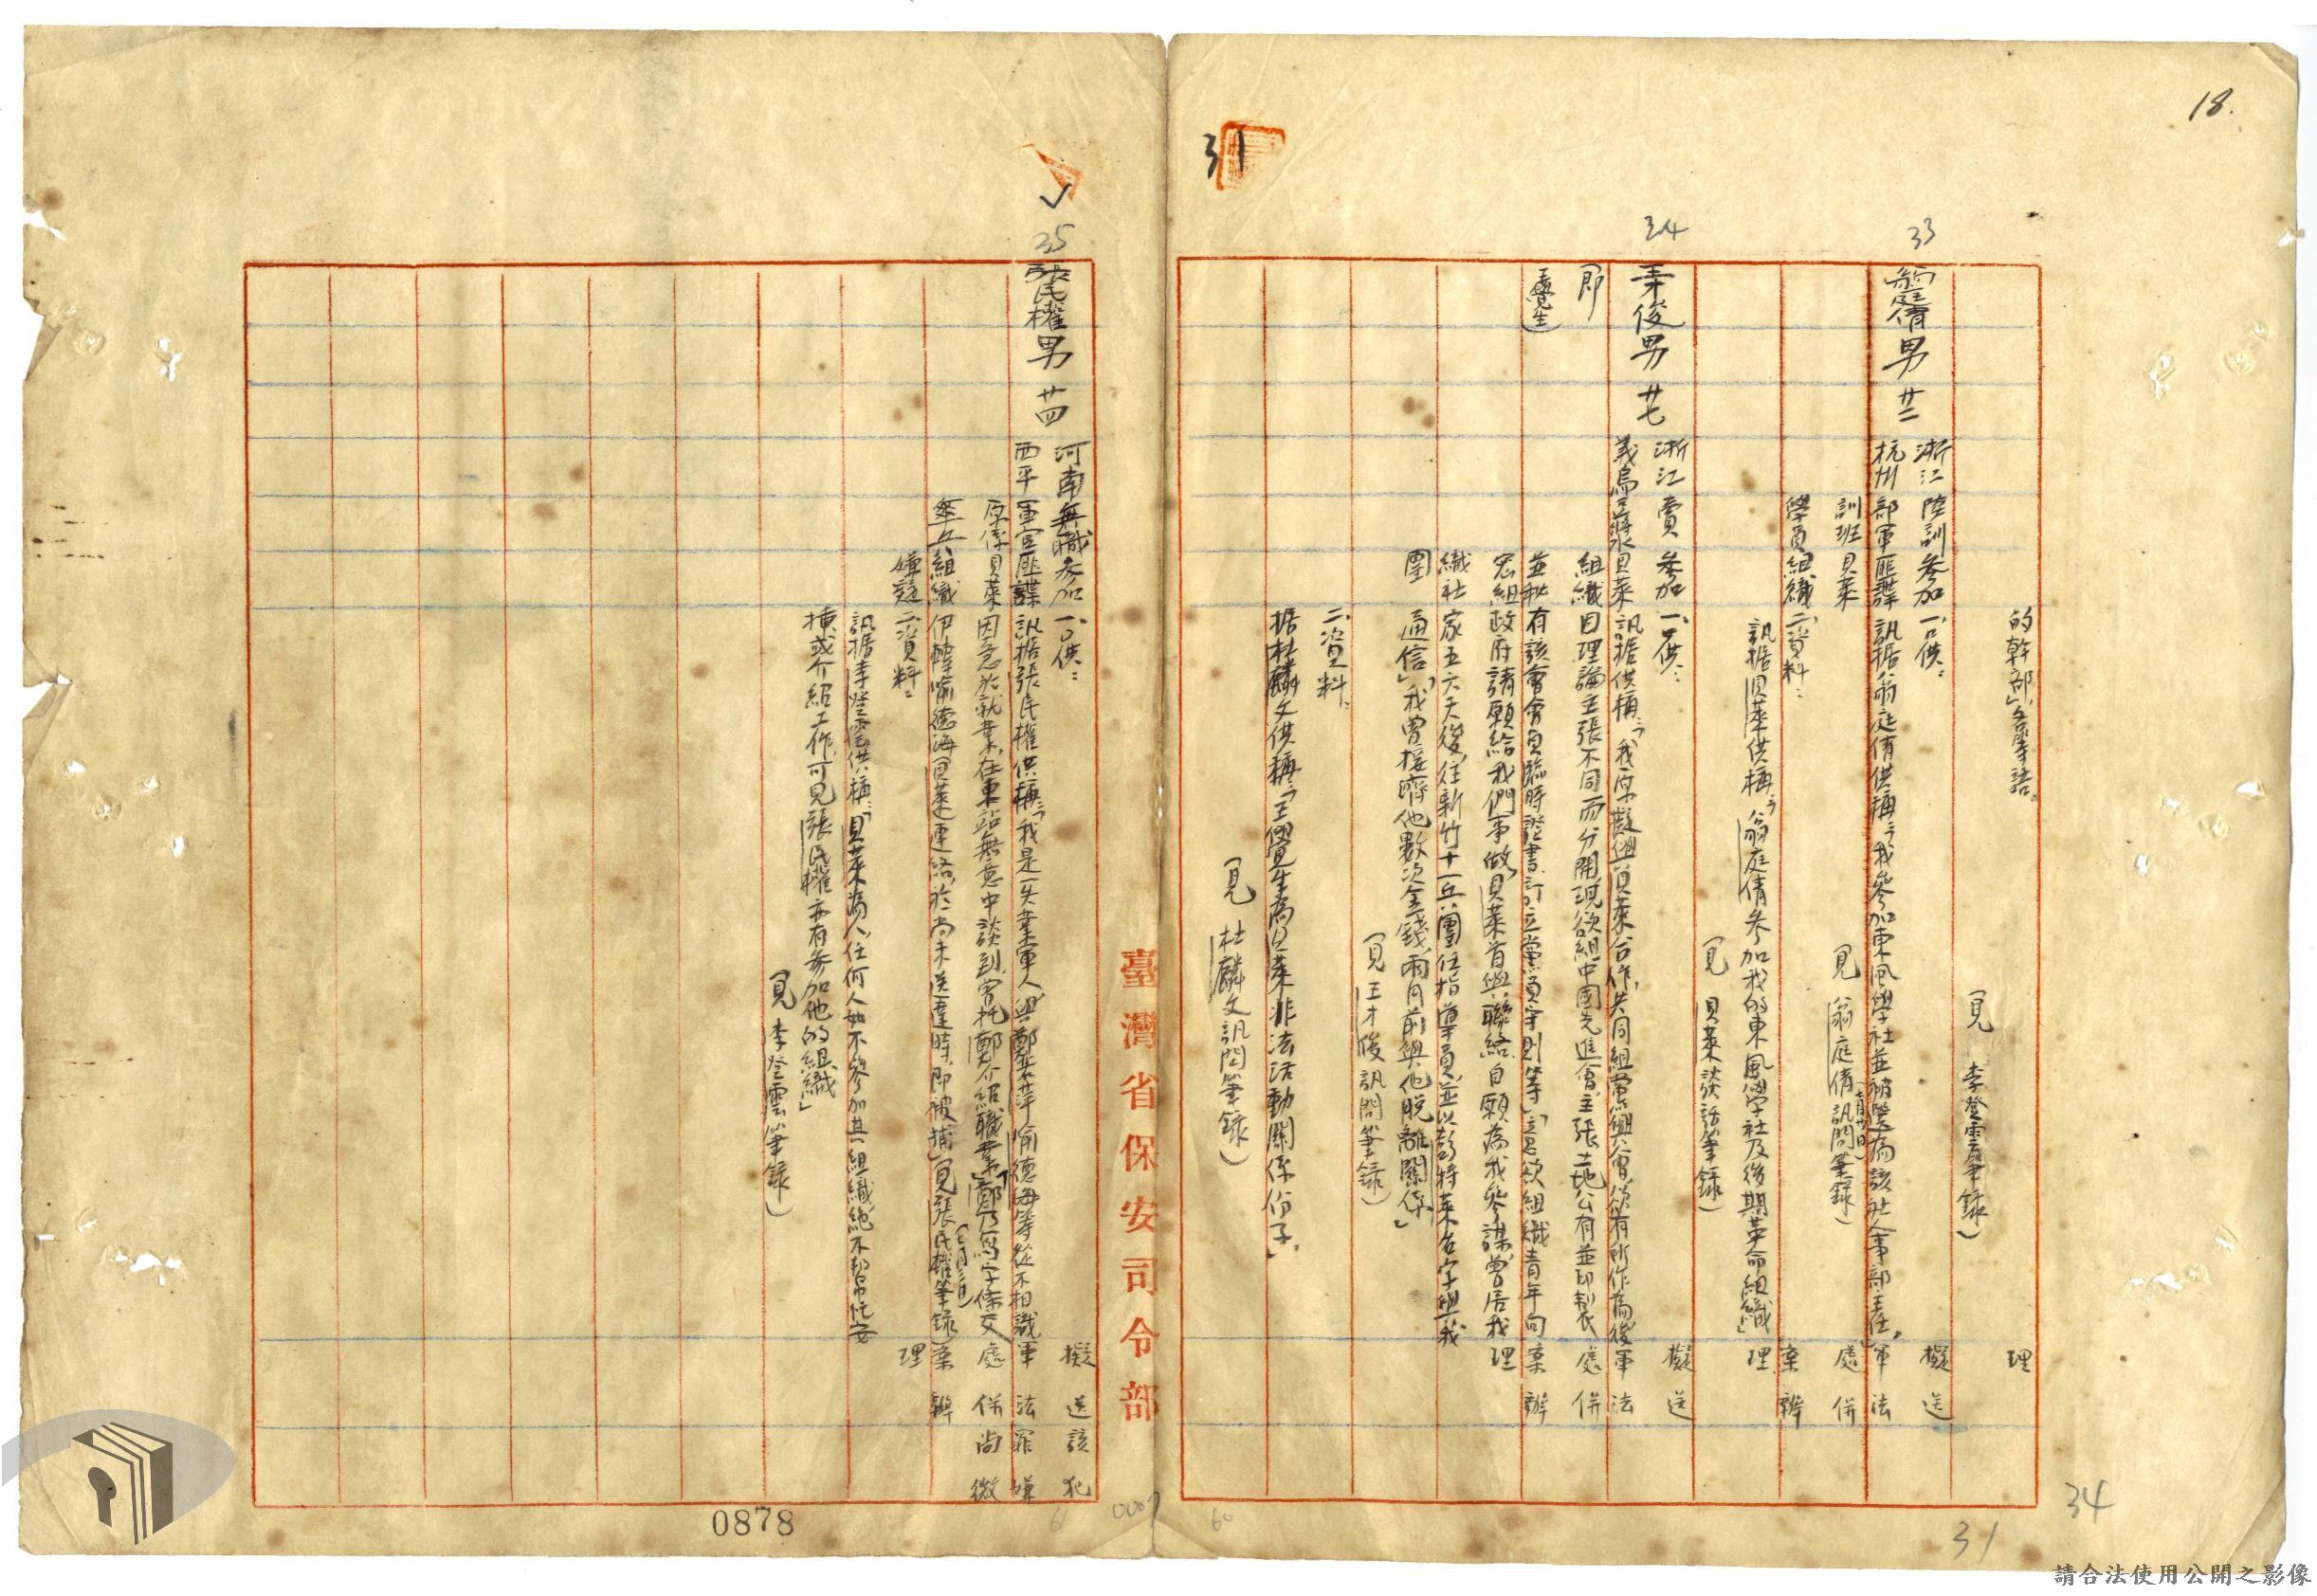 18.
31
33
34
的幹部」各等語。
(見 李登雲筆錄)
理
翁庭倩 男 廿二
浙江
杭州
陸訓
部軍
訓班
學員
參加
匪諜
貝萊
組織
一、口供:
訊据翁庭倩供稱:「我參加東風學社並被選為該社人事部主任,」
(見 翁庭倩訊問筆錄)
二、資料:
訊据貝萊供稱:「翁庭倩參加我的東風學社及後期革命組織」
(見 貝萊談話筆錄)
擬送
軍法
處併
案辦
理
俊 男 廿七
即
王覺生)
浙江
義烏
參加
貝萊
組織
一、口供:
訊据供稱:「我原擬與貝萊合作,共同組黨興會,欲有所作為後
因理論主張不同而分開,現欲組中國先進會,主張土地公有並印製
有該會會員臨時證書、訂立黨員守則等」「意欲組織青年向
政府請願給我們事做,貝萊首與聯絡自願為我參謀,曾居我
家五六天後,往新竹十一兵團任指導員,並以彭特萊名字與我
通信」「我曾接濟他數次金錢,兩月前與他脫離關係」
(見 王才俊訊問筆錄)
二、資料:
据杜麟文供稱:「王覺生為貝萊非法活動關係份子,」
(見 杜麟文訊問筆錄)
擬送
軍法
處併
案辦
理
臺灣省保安司令部
35
張民權 男 廿四
河南
西平
無職
軍官
參加
匪諜
貝萊
組織
嫌疑
一、口供:
訊据張民權供稱:「我是一失業軍人,與鄭 萍喻德海等從不相識
因急於就業,在車站無意中談到,窖托鄭介紹職業」「鄭乃寫字條交
伊轉喻德海貝萊連絡,於尚未送達時,即被捕」(見張民權筆錄)
二、資料:
訊据李登雲供稱:「貝萊為人,任何人如不參加其組織,絕不幫忙安
揷或介紹工作,可見張民權亦有參加他的組織」
(見 李登雲筆錄)
擬送該犯
軍法罪嫌
處併尚微
案辦
理
0878
34
31
60
61
請合法使用公開之影像